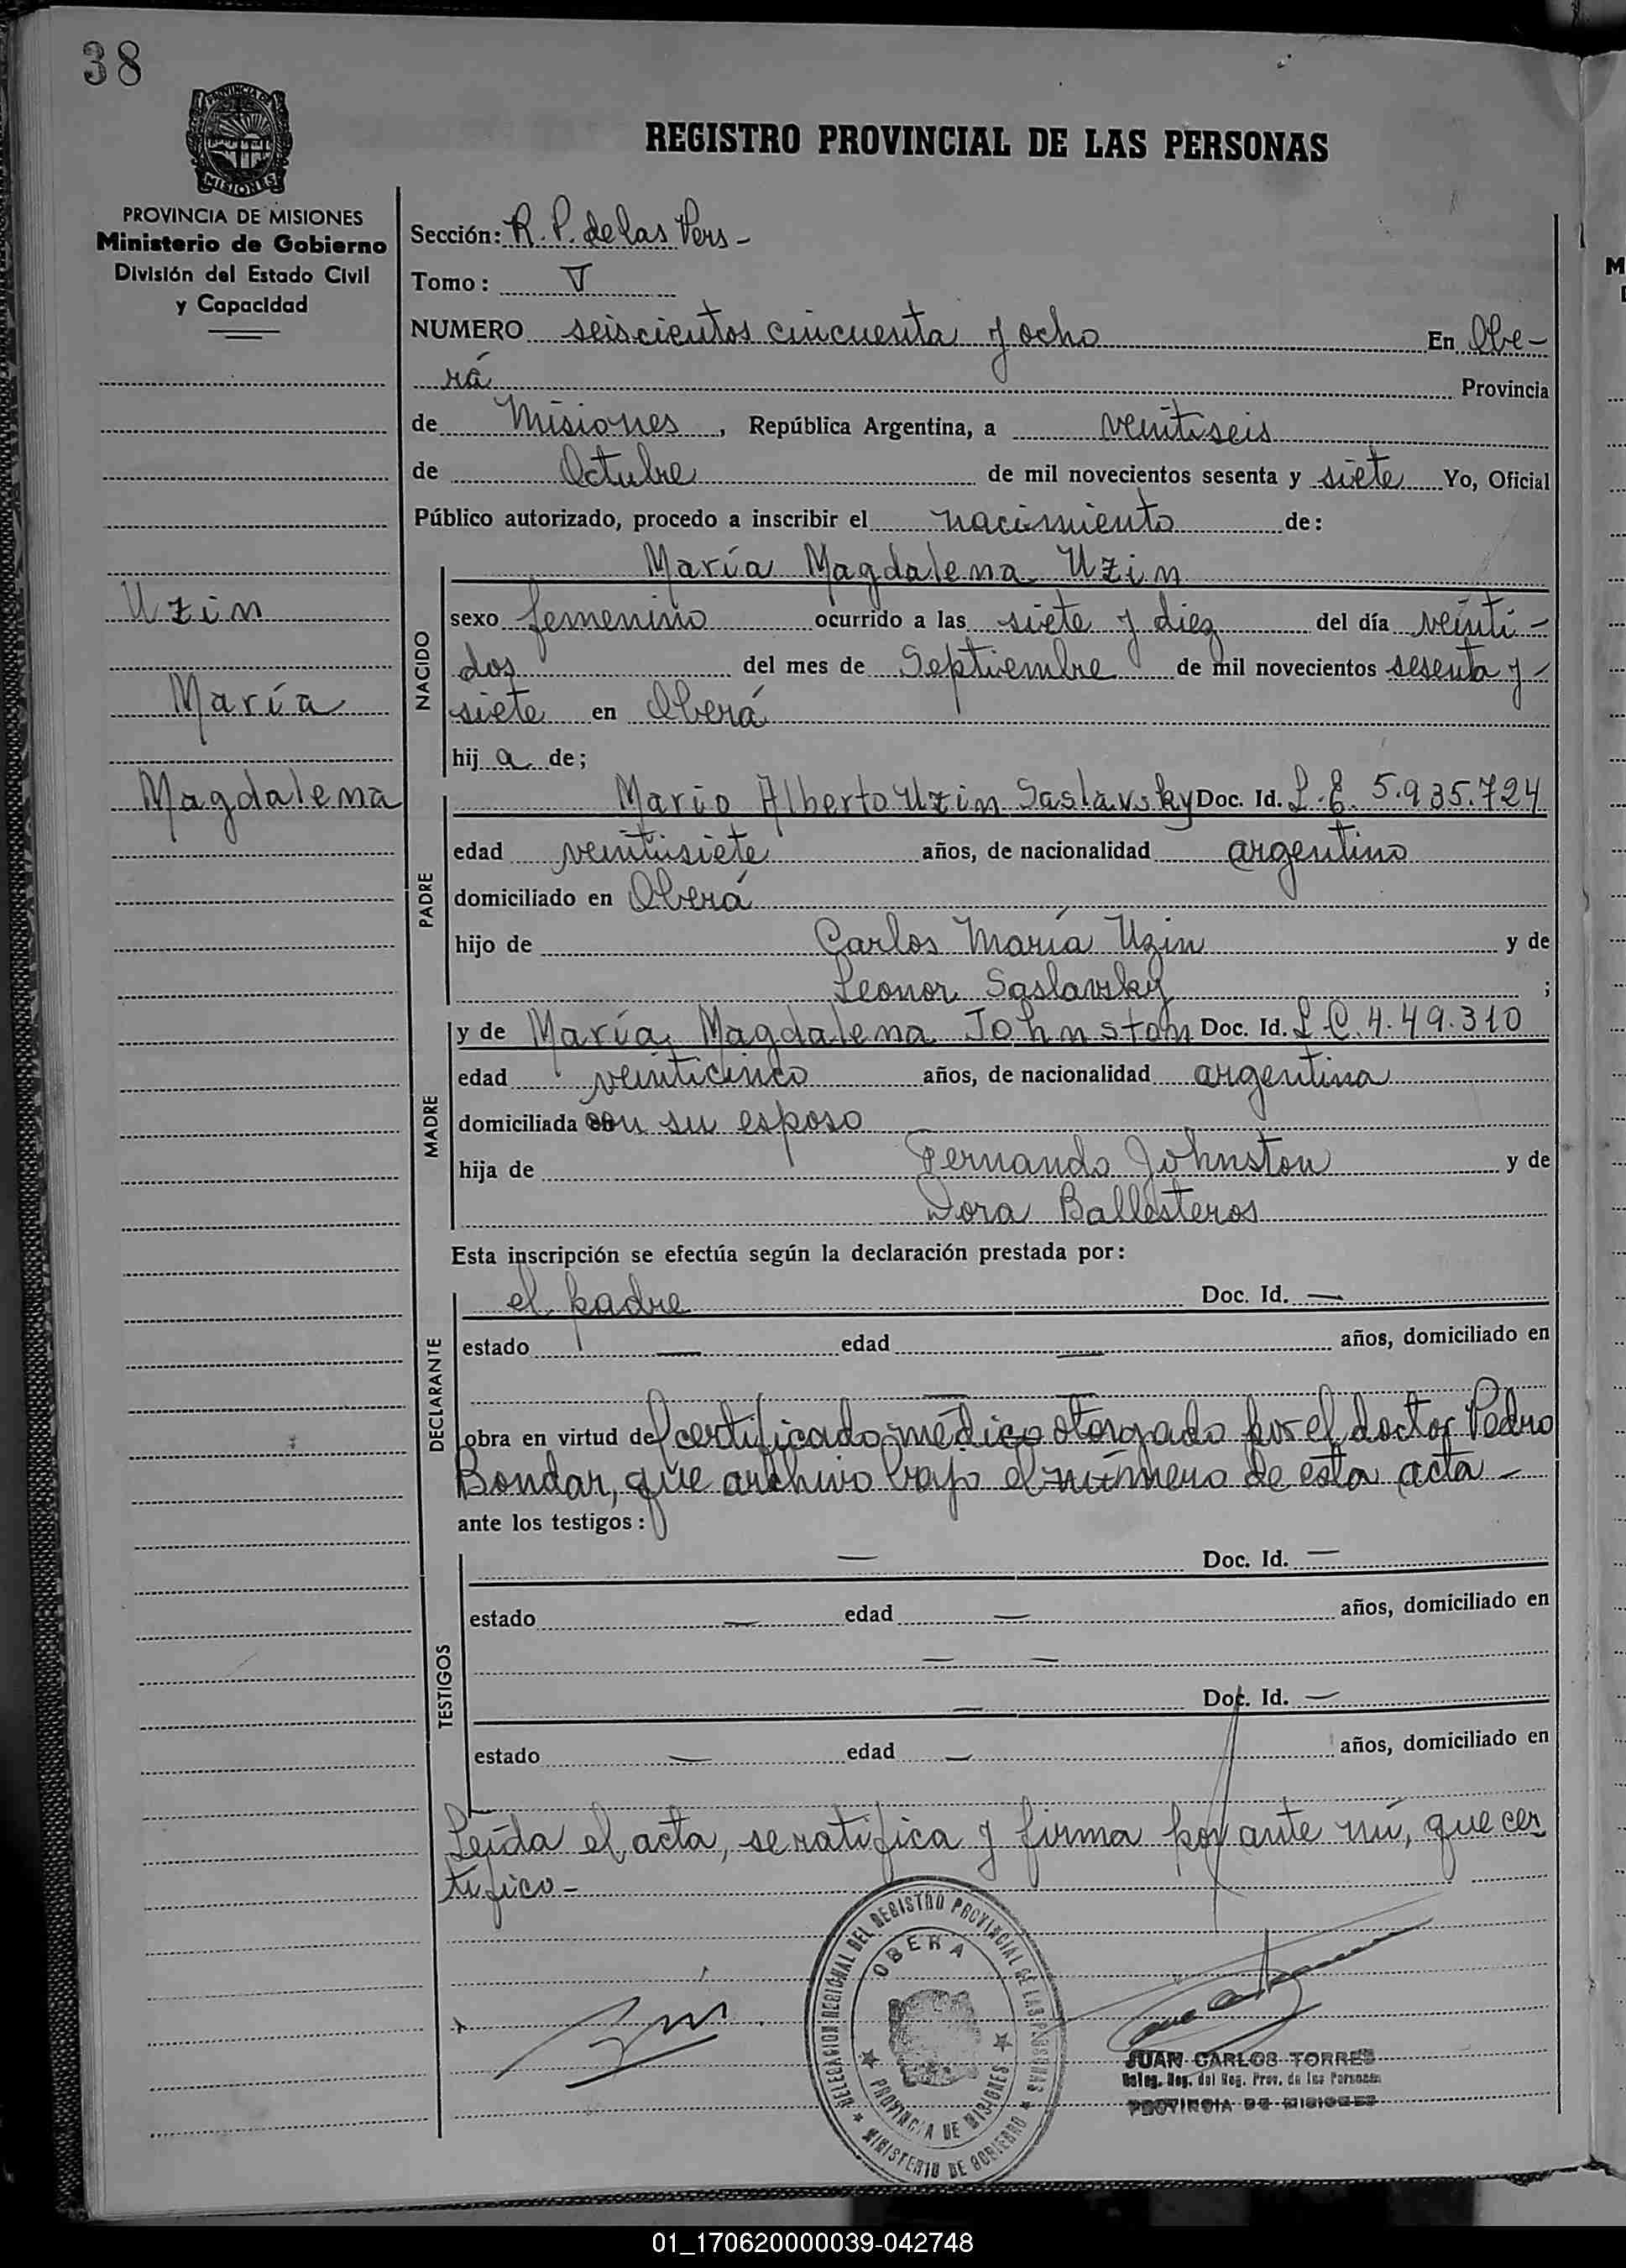 38
PROVINCIA DE
MISIONES
REGISTRO PROVINCIAL DE LAS PERSONAS
PROVINCIA DE MISIONES
Ministerio de Gobierno
División del Estado Civil
y Capacidad
Uzin
María
Magdalena
Sección: R. P. de las Pers -
Tomo: V
NUMERO seiscientos cincuenta y ocho En Obe-
rá Provincia
de Misiones, República Argentina, a veintiseis
de Octubre de mil novecientos sesenta y siete Yo, Oficial
Público autorizado, procedo a inscribir el nacimiento de:
María Magdalena Uzin
NACIDO
sexo femenino ocurrido a las siete y diez del día veinti-
dos del mes de Septiembre de mil novecientos sesenta y-
siete en Oberá
hij a de;
PADRE
Mario Alberto Uzin Saslavsky Doc. Id. L.E. 5.935.724
edad veintisiete años, de nacionalidad argentino
domiciliado en Oberá
hijo de Carlos María Uzin y de
Leonor Saslavsky ;
MADRE
y de María Magdalena Johnston Doc. Id. L C. 4.49.310
edad veinticinco años, de nacionalidad argentina
domiciliada con su esposo
hija de Fernando Johnston y de
Dora Ballesteros
Esta inscripción se efectúa según la declaración prestada por:
DECLARANTE
el padre Doc. Id. —
estado — edad — años, domiciliado en
— —
obra en virtud del certificado médico otorgado por el doctor Pedro
Bondar, que archivo bajo el número de esta acta -
ante los testigos:
TESTIGOS
— Doc. Id. —
estado — edad — años, domiciliado en
— —
— Doc. Id. —
estado — edad — años, domiciliado en
Leída el acta, se ratifica y firma por ante mí, que cer
tifico -
DELEGACION REGIONAL DEL REGISTRO PROVINCIAL DE LAS PERSONAS
OBERA
PROVINCIA DE MISIONES
MINISTERIO DE GOBIERNO
JUAN CARLOS TORRES
Deleg. Reg. del Reg. Prov. de las Personas
PROVINCIA DE MISIONES
01_170620000039-042748